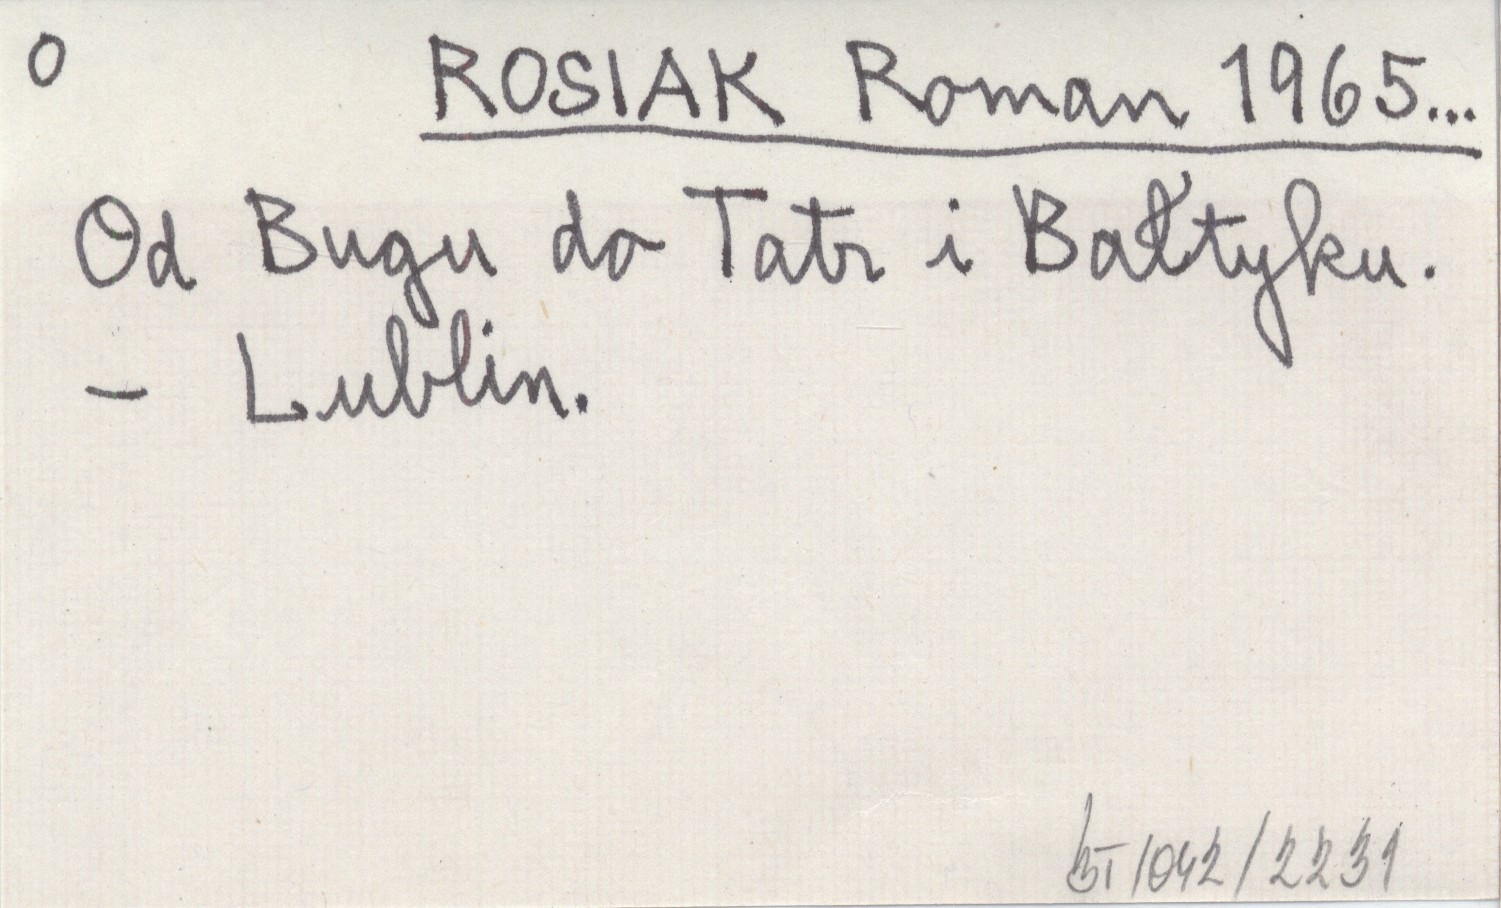 O ROSIAK Roman 1965...
Od Bugu do Tatr i Bałtyku.
– Lublin.
BT/042/2231